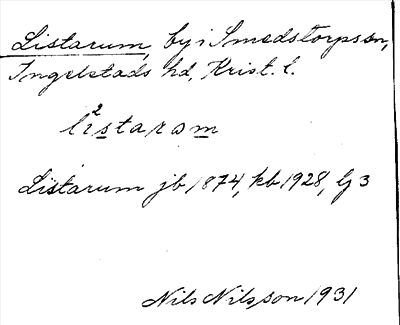 Listarum, by i Smedstorps sn,
Ingelstads hd, Krist. l.
li²starom
Listarum jb 1874, kb 1928, Gj 3
Nils Nilsson 1931